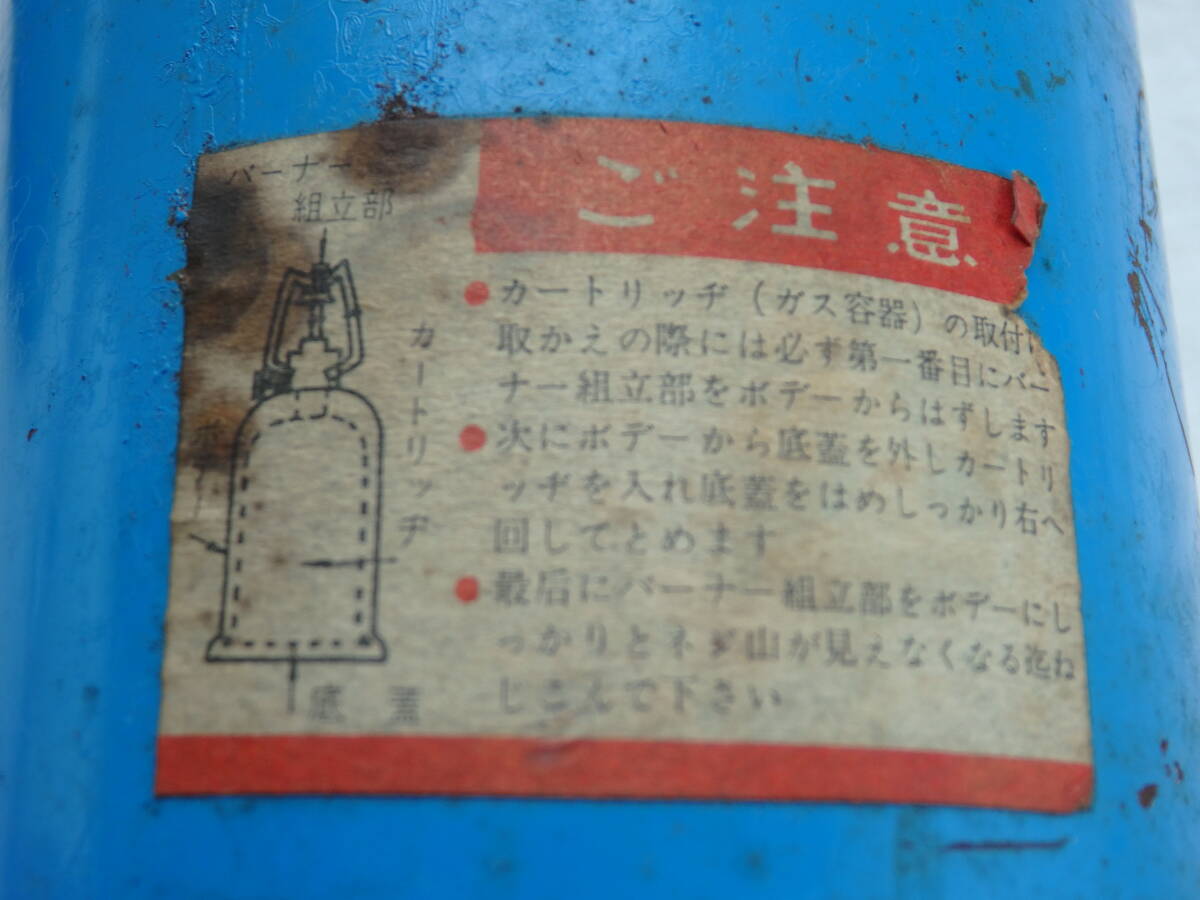 ご注意
バーナー
組立部
カートリッヂ
底蓋
●カートリッヂ（ガス容器）の取付
取かえの際には必ず第一番目にバー
ナー組立部をボデーからはずします
●次にボデーから底蓋を外しカートリ
ッヂを入れ底蓋をはめしっかり右へ
回してとめます
●最后にバーナー組立部をボデーにし
っかりとネヂ山が見えなくなる迄ね
じこんで下さい